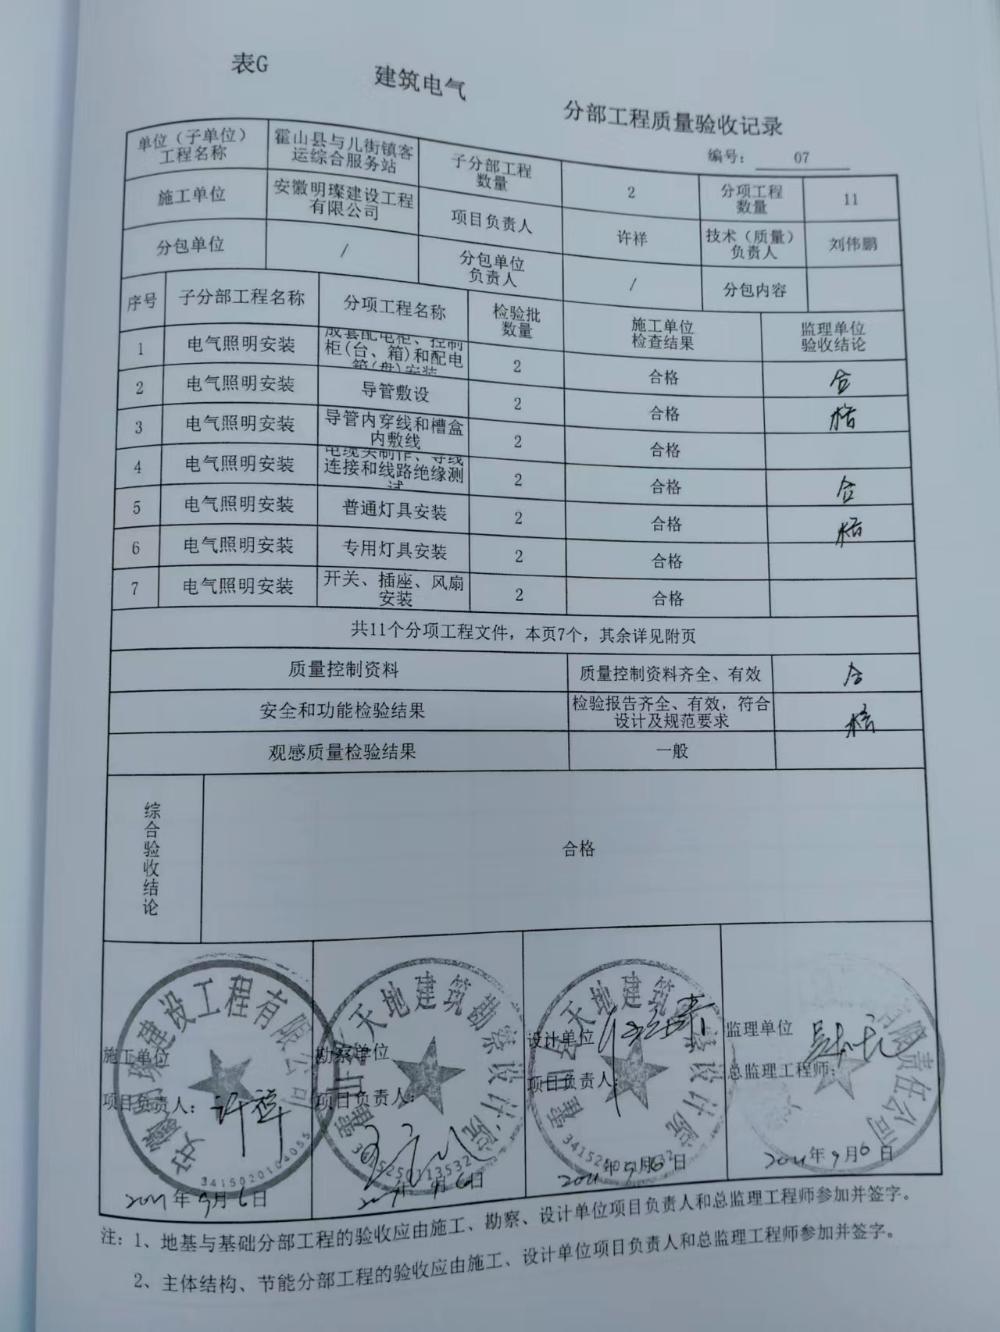 表G
建筑电气
分部工程质量验收记录
编号： 07
单位（子单位）
工程名称
霍山县与儿街镇客
运综合服务站
子分部工程
数量
2
分项工程
数量
11
施工单位
安徽明璨建设工程
有限公司
项目负责人
许祥
技术（质量）
负责人
刘伟鹏
分包单位
/
分包单位
负责人
/
分包内容
序号
子分部工程名称
分项工程名称
检验批
数量
施工单位
检查结果
监理单位
验收结论
1
电气照明安装
成套配电柜、控制
柜(台、箱)和配电
箱(盘)安装
2
合格
合
2
电气照明安装
导管敷设
2
合格
格
3
电气照明安装
导管内穿线和槽盒
内敷线
2
合格
4
电气照明安装
电缆头制作、导线
连接和线路绝缘测
试
2
合格
合
5
电气照明安装
普通灯具安装
2
合格
格
6
电气照明安装
专用灯具安装
2
合格
7
电气照明安装
开关、插座、风扇
安装
2
合格
共11个分项工程文件，本页7个，其余详见附页
质量控制资料
质量控制资料齐全、有效
合
安全和功能检验结果
检验报告齐全、有效，符合
设计及规范要求
格
观感质量检验结果
一般
综合验收结论
合格
施工单位
项目负责人：
许祥
2021年9月6日
安徽明璨建设工程有限公司
3415020104055
勘察单位
项目负责人：
月6日
天地建筑勘察设计院
设计单位
项目负责人：
2021年9月6日
天地建筑勘察设计院
监理单位
总监理工程师：
2021年9月6日
有限责任公司
注：1、地基与基础分部工程的验收应由施工、勘察、设计单位项目负责人和总监理工程师参加并签字。
2、主体结构、节能分部工程的验收应由施工、设计单位项目负责人和总监理工程师参加并签字。